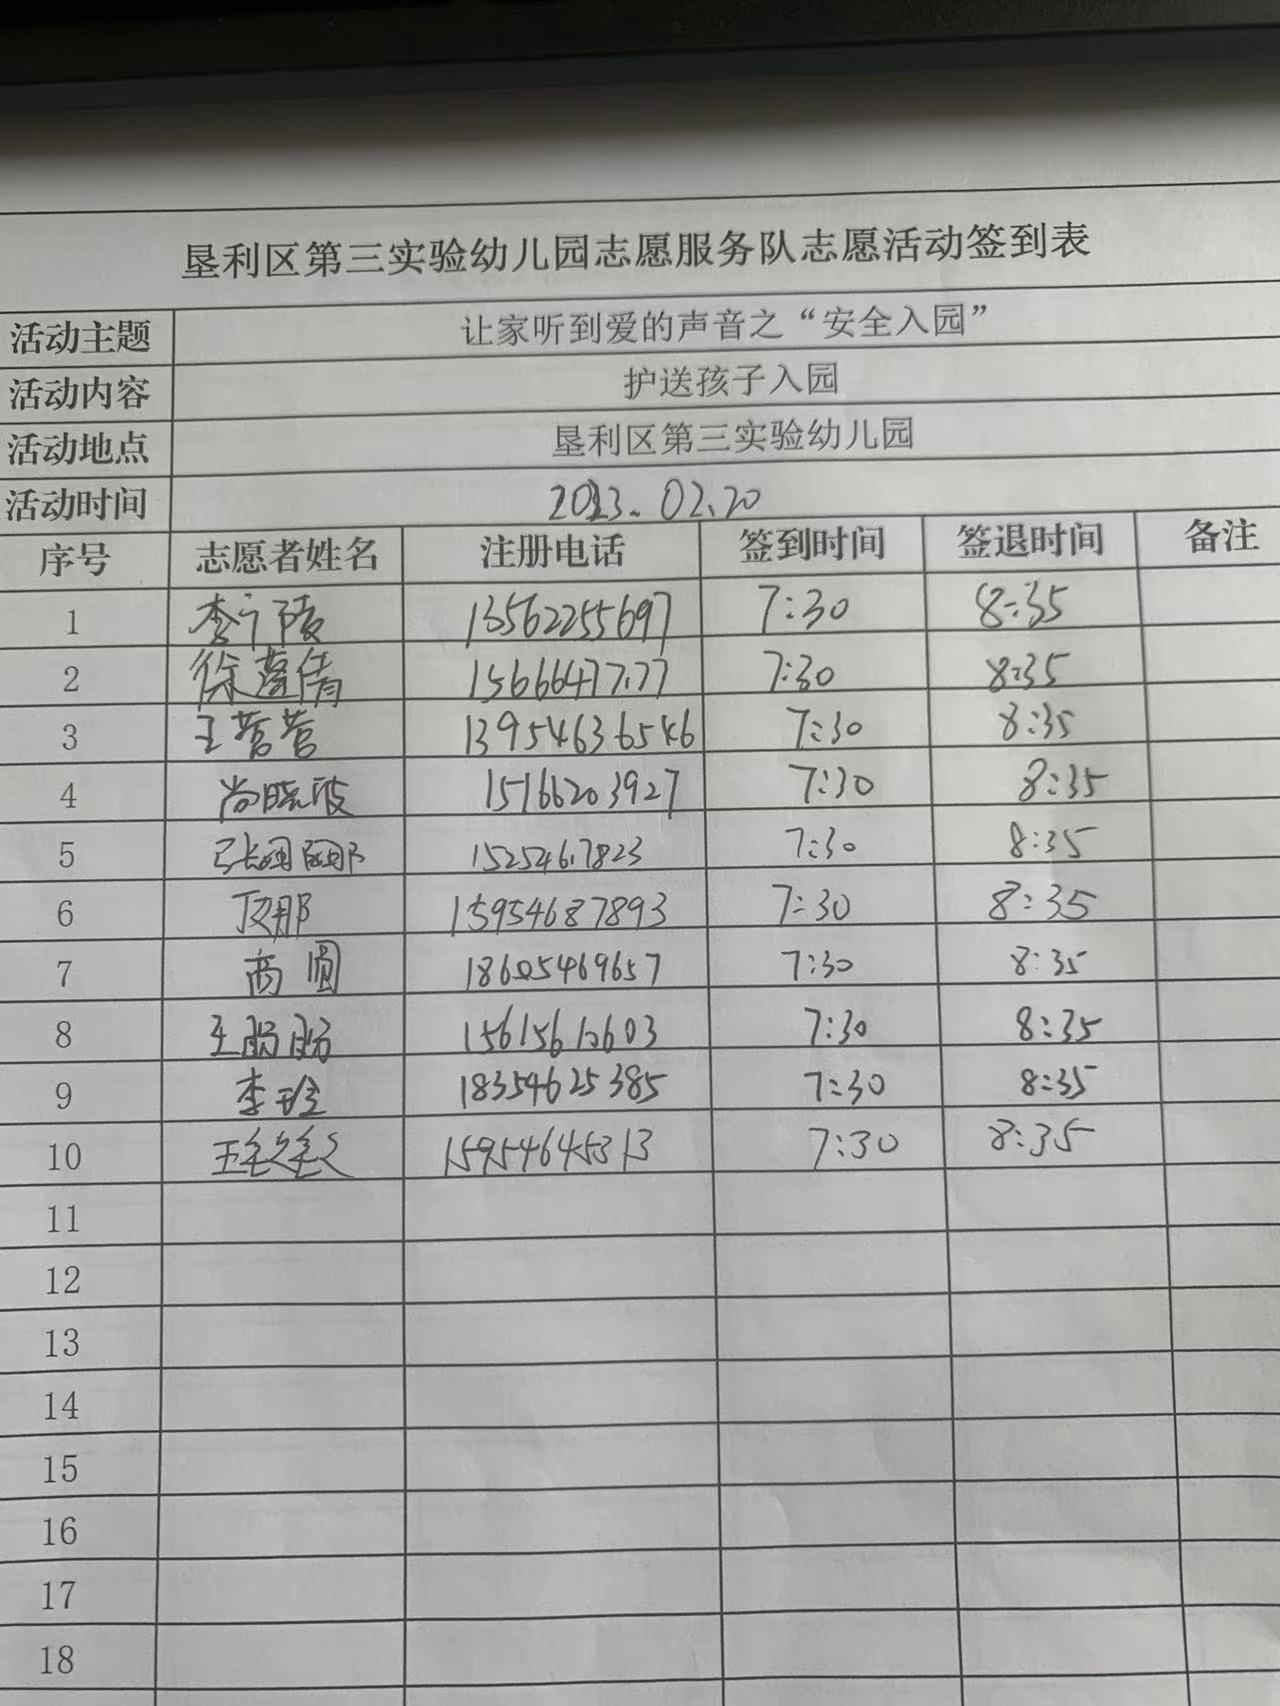 垦利区第三实验幼儿园志愿服务队志愿活动签到表
活动主题 让家听到爱的声音之“安全入园”
活动内容 护送孩子入园
活动地点 垦利区第三实验幼儿园
活动时间 2023.02.20
序号 志愿者姓名 注册电话 签到时间 签退时间 备注
1 李宁陵 13562255697 7:30 8:35
2 徐蕴倩 7:30 8:35
3 王营营 13954636546 7:30 8:35
4 尚晓波 15166203927 7:30 8:35
5 15254617823 7:30 8:35
6 15954687893 7:30 8:35
7 商圆 18605469657 7:30 8:35
8 王盼盼 15615612603 7:30 8:35
9 李玲 18354625385 7:30 8:35
10 15954645313 7:30 8:35
11
12
13
14
15
16
17
18